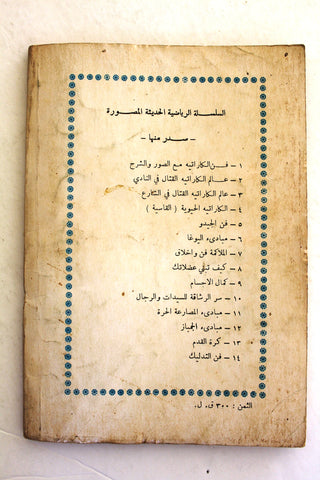 السلسلة الرياضية الحديثة المصورة
- صدر منها -
١ - فن الكاراتيه مع الصور والشرح
٢ - عالم الكاراتيه القتال في النادي
٣ - عالم الكاراتيه القتال في الشارع
٤ - الكاراتيه الحيوية ( القاسية )
٥ - فن الجيدو
٦ - مبادىء اليوغا
٧ - الملاكمة فن واخلاق
٨ - كيف تبني عضلاتك
٩ - كمال الاجسام
١٠ - سر الرشاقة للسيدات والرجال
١١ - مبادىء المصارعة الحرة
١٢ - مبادىء الجمباز
١٣ - كرة القدم
١٤ - فن التدليك
الثمن : ٣٠٠ ق. ل.